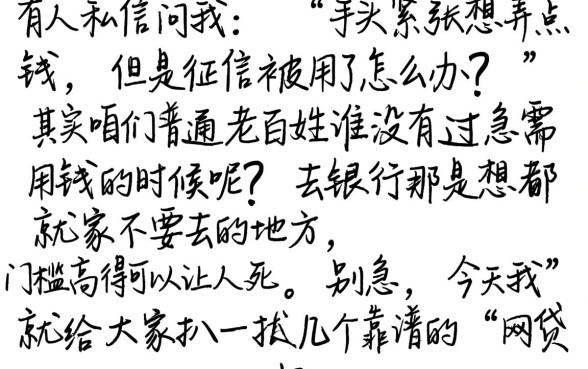 有人私信问我：“手头紧张想弄点
钱，但是征信被用了怎么办？”
其实咱们普通老百姓谁没有过急需
用钱的时候呢？去银行那是想都
就家不要去的地方，
门槛高得可以让人死。别急，今天我”
就给大家扒一拔几个靠谱的“网贷